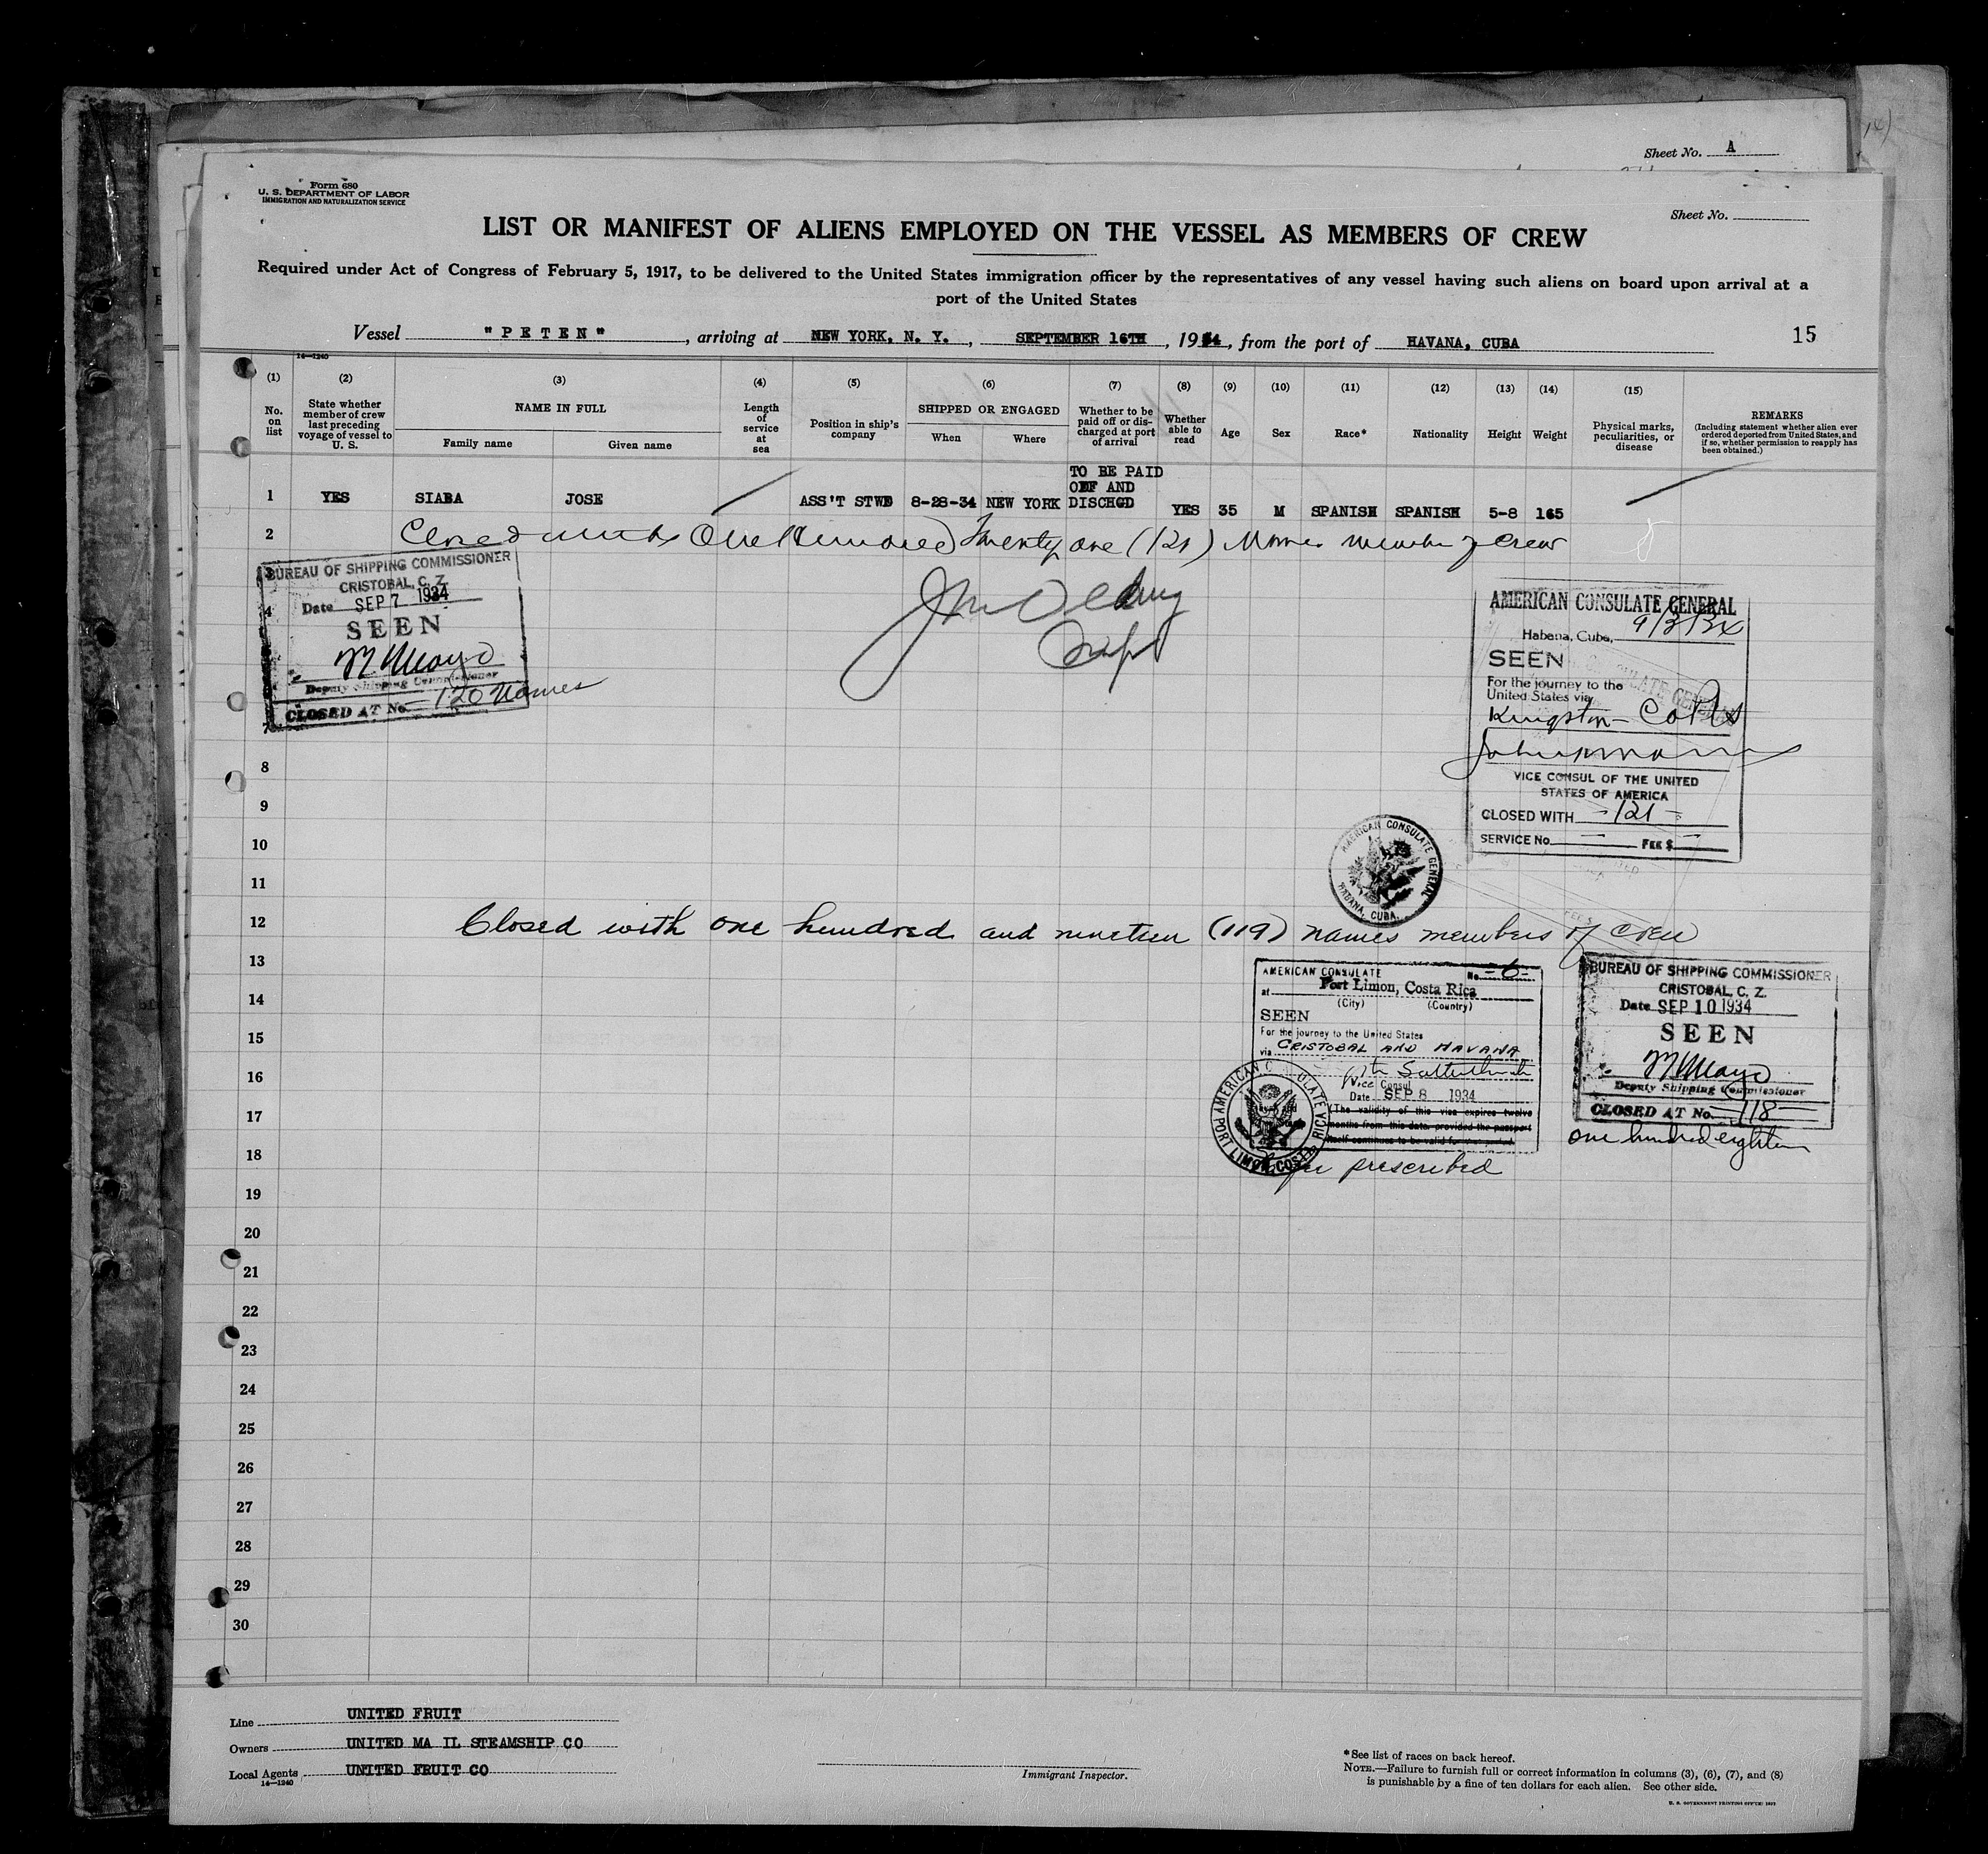 Sheet No. A
Form 680
U. S. DEPARTMENT OF LABOR
IMMIGRATION AND NATURALIZATION SERVICE
Sheet No.
LIST OR MANIFEST OF ALIENS EMPLOYED ON THE VESSEL AS MEMBERS OF CREW
Required under Act of Congress of February 5, 1917, to be delivered to the United States immigration officer by the representatives of any vessel having such aliens on board upon arrival at a
port of the United States
Vessel "PETEN", arriving at NEW YORK, N. Y., SEPTEMBER 16TH, 1934, from the port of HAVANA, CUBA 15
14—1240
(1) (2) (3) (4) (5) (6) (7) (8) (9) (10) (11) (12) (13) (14) (15)
No. on list
State whether member of crew last preceding voyage of vessel to U. S.
NAME IN FULL
Family name Given name
Length of service at sea
Position in ship's company
SHIPPED OR ENGAGED
When Where
Whether to be paid off or discharged at port of arrival
Whether able to read
Age Sex Race* Nationality Height Weight
Physical marks, peculiarities, or disease
REMARKS
(Including statement whether alien ever ordered deported from United States, and if so, whether permission to reapply has been obtained.)
1 YES SIABA JOSE ASS'T STWD 8-28-34 NEW YORK TO BE PAID OFF AND DISCHGD YES 35 M SPANISH SPANISH 5-8 165
2 Closed with One Hundred Twenty one (121) Names members of Crew
BUREAU OF SHIPPING COMMISSIONER
CRISTOBAL, C. Z.
4 Date SEP 7 1934
SEEN
Mayo
Deputy Shipping Commissioner
CLOSED AT No. 120 names
7
Capt
AMERICAN CONSULATE GENERAL
Habana, Cuba,
SEEN
For the journey to the
United States via
Kingston—
VICE CONSUL OF THE UNITED
STATES OF AMERICA
CLOSED WITH -121-
SERVICE No. — FEE $ —
8
9
10
AMERICAN CONSULATE GENERAL
HABANA, CUBA.
11
12 Closed with one hundred and nineteen (119) names members of crew
13
14
15
16
17
18
AMERICAN CONSULATE No. -6-
at Port Limon, Costa Rica
(City) (Country)
SEEN
For the journey to the United States
via CRISTOBAL AND HAVANA
Vice Consul
Date SEP 8 1934
(The validity of this visa expires twelve
months from this date, provided the passport
itself continues to be valid for that period.
prescribed
BUREAU OF SHIPPING COMMISSIONER
CRISTOBAL, C. Z.
Date SEP 10 1934
SEEN
Mayo
Deputy Shipping Commissioner
CLOSED AT No. —118—
one hundred eighteen
19
20
21
22
23
24
25
26
27
28
29
30
Line UNITED FRUIT
Owners UNITED MA IL STEAMSHIP CO
Local Agents UNITED FRUIT CO
14—1240
Immigrant Inspector.
*See list of races on back hereof.
NOTE.—Failure to furnish full or correct information in columns (3), (6), (7), and (8)
is punishable by a fine of ten dollars for each alien. See other side.